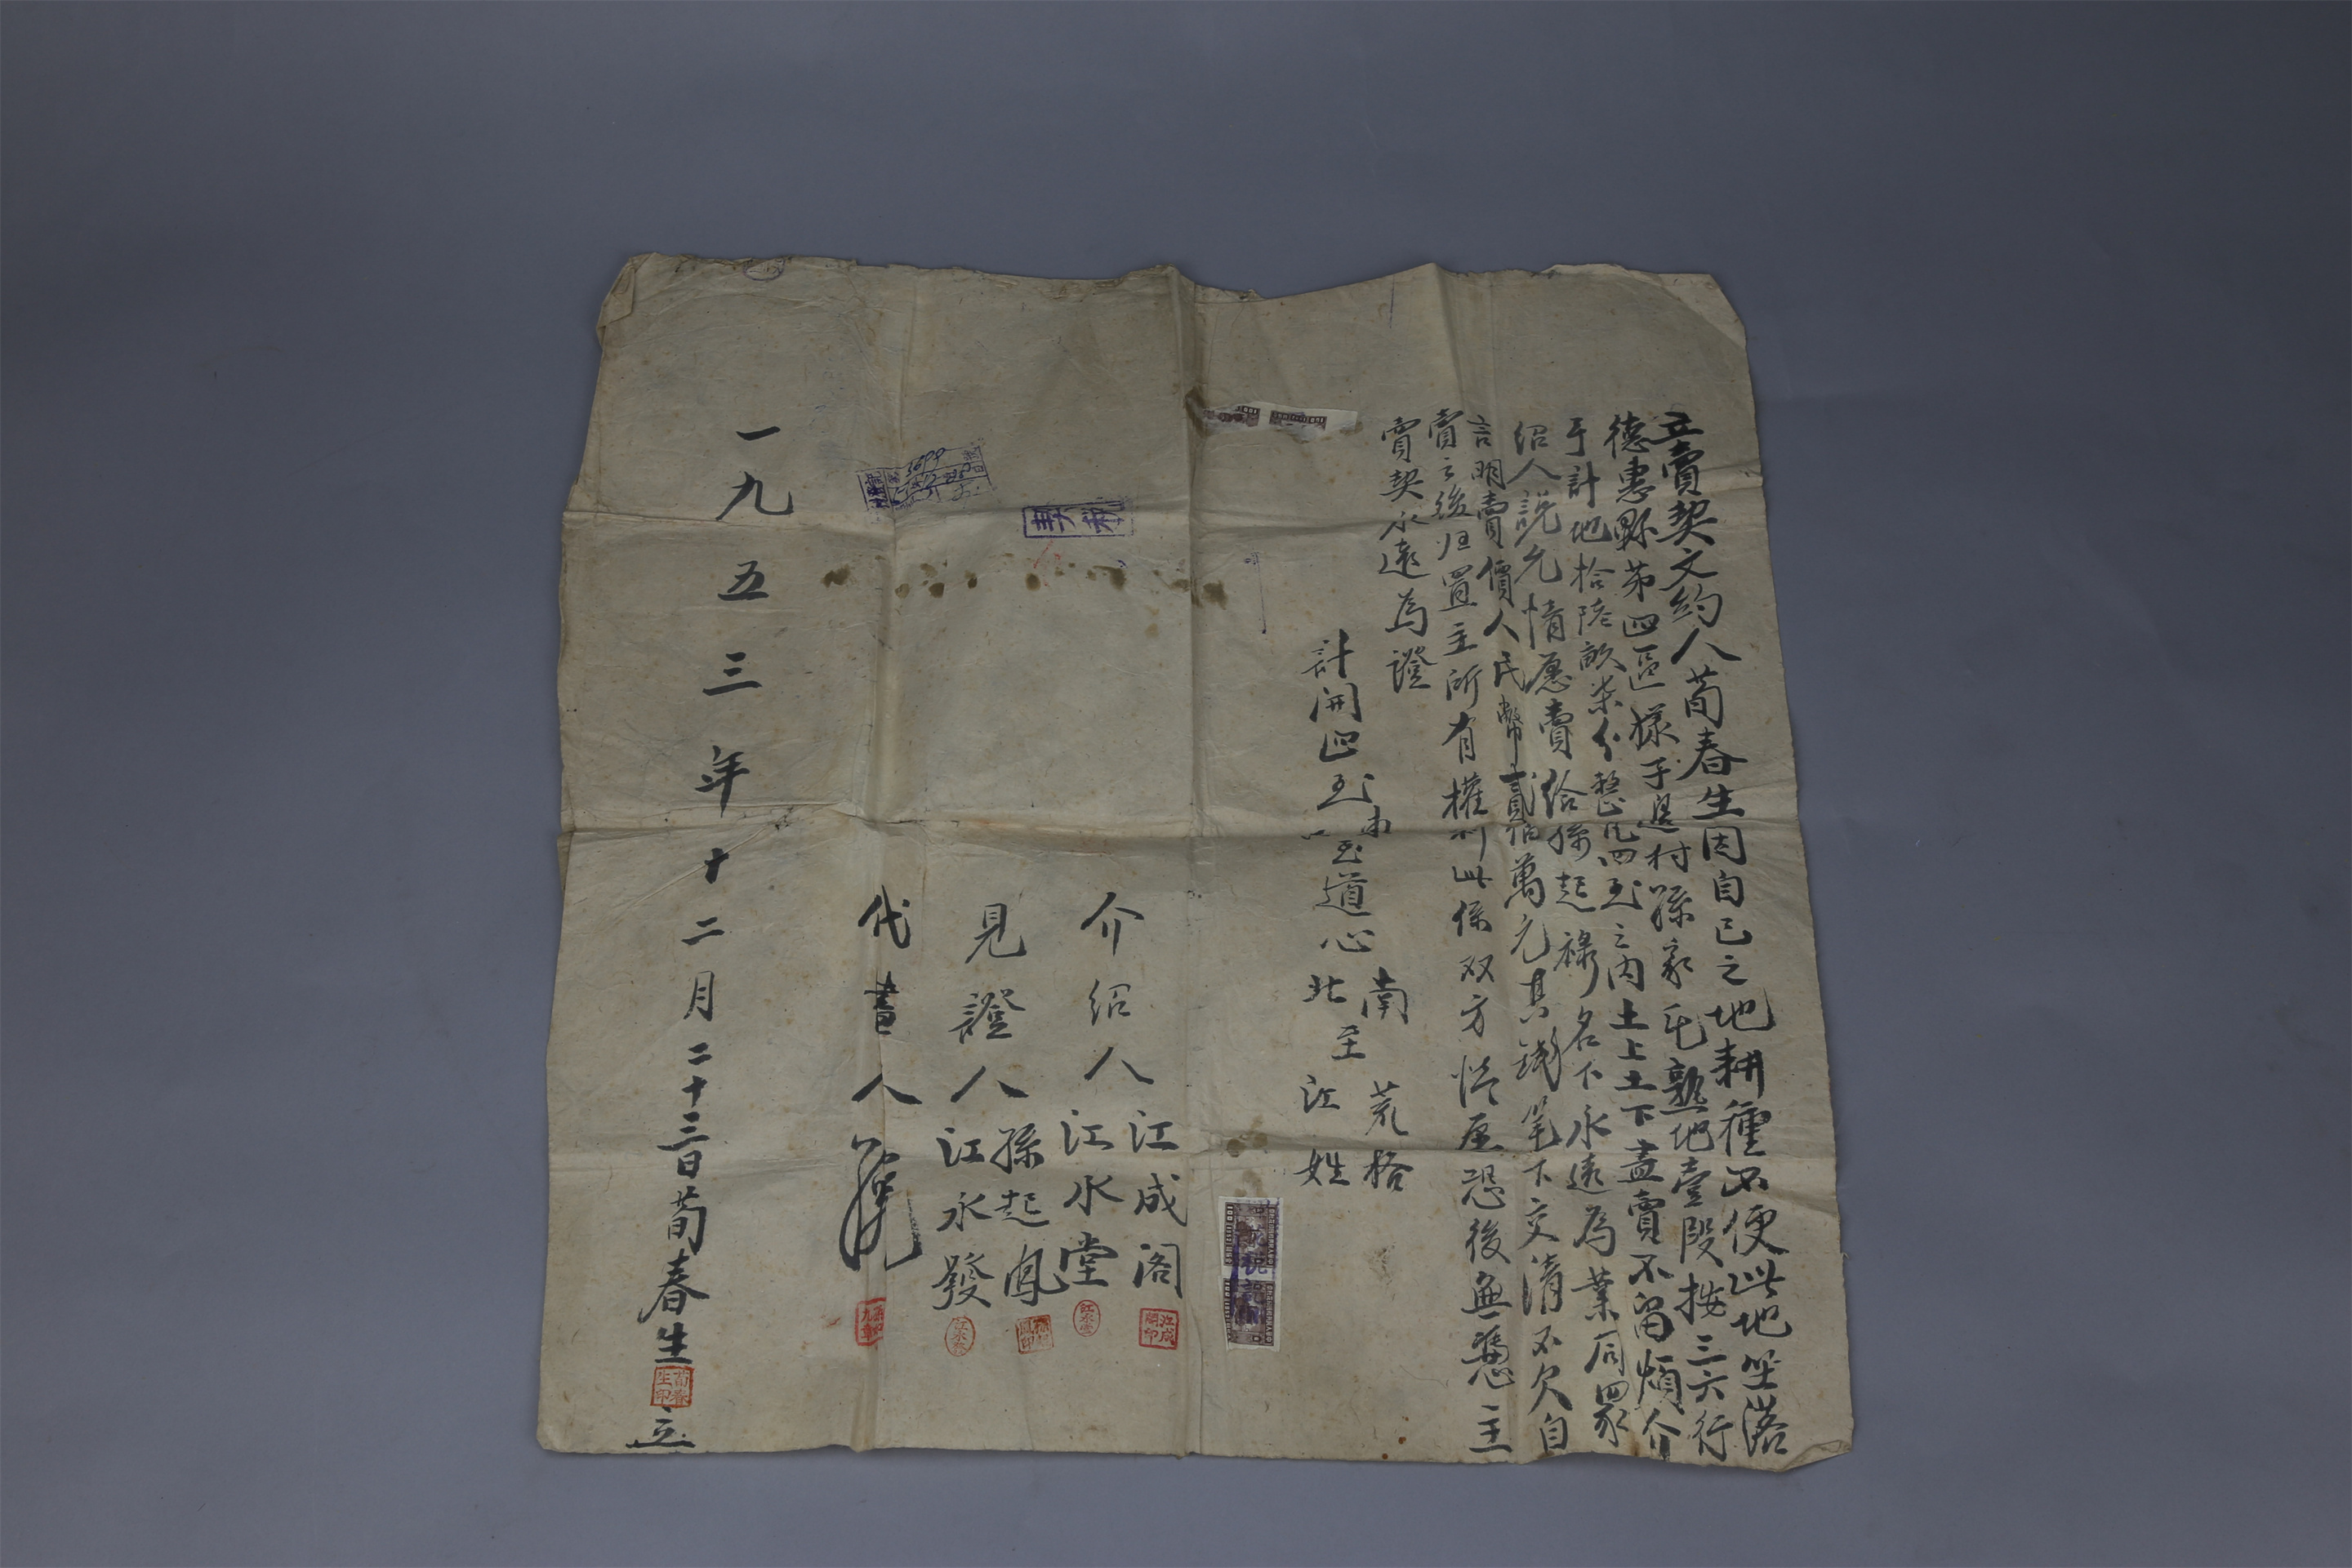 立賣契文約人荀春生因自己之地耕種不便此地坐落
德惠縣苐四區樣子邑村孫家屯熟地壹段按三六行
于計地拾陸畝柒分整凡四至之内土上土下盡賣不留煩介
紹人説允情愿賣給孫起祿名下永遠為業同眾
言明賣價人民幣貳佰萬元其錢筆下交清不欠自
賣之後归置主所有權利此係双方情愿恐後無憑立
賣契永遠為證
計開四至
至道心
南 荒格
北至江姓
介紹人江成阁
江永堂
見證人孫起鳳
江永發
代書人
一九五三年十二月二十三日荀春生立
江成閣印
江永堂
江永發
荀春生印